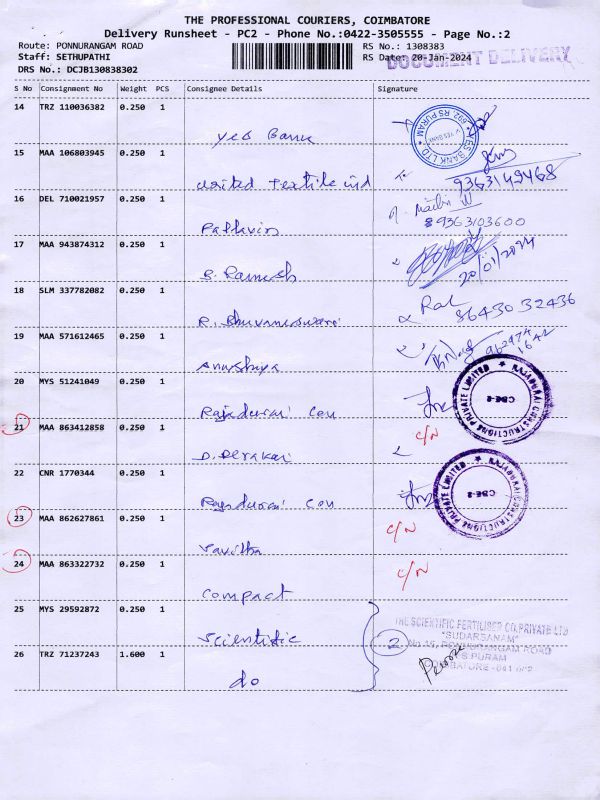 THE PROFESSIONAL COURIERS, COIMBATORE
Delivery Runsheet - PC2 - Phone No.:0422-3505555 - Page No.:2
Route: PONNURANGAM ROAD RS No.: 1308383
Staff: SETHUPATHI RS Date: 20-Jan-2024
DOCUMENT DELIVERY
DRS No.: DCJB130838302
S No Consignment No Weight PCS Consignee Details Signature
14 TRZ 110036382 0.250 1
Yes Bank
YES BANK LTD RS PURAM
15 MAA 106803945 0.250 1
United Textile ind 9363149468
16 DEL 710021957 0.250 1
9363103600
17 MAA 943874312 0.250 1
S. Ramesh 20/01/2024
18 SLM 337782082 0.250 1
R. Bhuvaneswari 8643032436
19 MAA 571612465 0.250 1
Anushiya
20 MYS 51241049 0.250 1
Rajadurai Con
RAJADURAI CONSTRUCTIONS PRIVATE LIMITED CBE-2
21 MAA 863412858 0.250 1 C/N
22 CNR 1770344 0.250 1
Rajadurai Con
RAJADURAI CONSTRUCTIONS PRIVATE LIMITED CBE-2
23 MAA 862627861 0.250 1 C/N
24 MAA 863322732 0.250 1 C/N
Compact
25 MYS 29592872 0.250 1
Scientific
THE SCIENTIFIC FERTILISER CO.PRIVATE LTD
"SUDARSANAM"
2 No 15, PONNURANGAM ROAD
R S PURAM
COIMBATORE - 641 002
26 TRZ 71237243 1.600 1
do